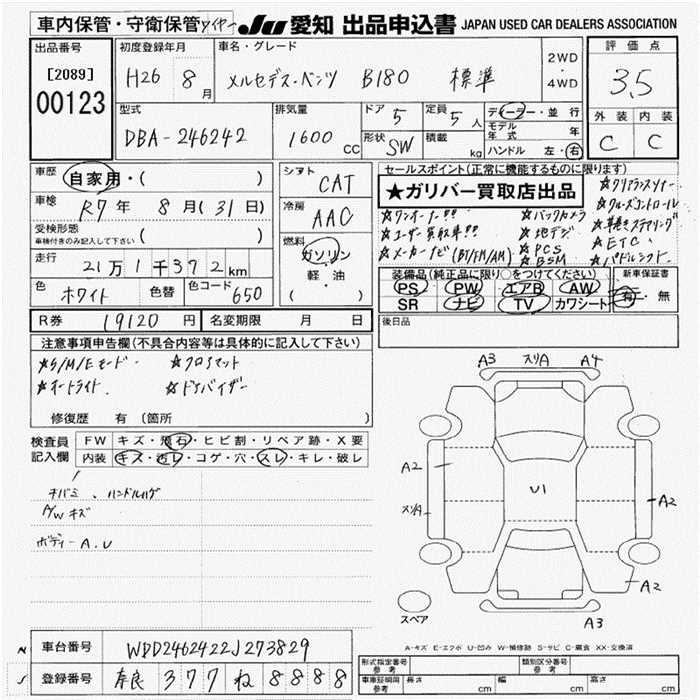 車内保管・守衛保管 タイヤー JU 愛知 出品申込書 JAPAN USED CAR DEALERS ASSOCIATION
出品番号 [2089] 00123
初度登録年月 H26 8月
車名・グレード メルセデス・ベンツ B180 標準
2WD・4WD
評価点 3.5
外装 C 内装 C
型式 DBA-246242
排気量 1600 CC
ドア 5 定員 5人
形状 SW 積載 kg
ディーラー・並行
モデル年式 年
ハンドル 左・右
車歴 自家用・( )
車検 R7年 8月(31日)
受検形態 車検付きのみ記入して下さい ( )
走行 21万1千372km
色 ホワイト 色替 色コード 650
シフト CAT
冷房 AAC
燃料 ガソリン・軽油 ( )
セールスポイント(正常に機能するものに限ります)
★ガリバー買取店出品
☆クリアランスソナー
☆クルーズコントロール
☆ワンオーナー!! ☆バックカメラ ☆革巻きステアリング
☆ユーザー買取車!! ☆地デジ ☆ETC
☆メーカーナビ(BT/FM/AM) ☆PCS ☆BSM ☆パドルシフト
装備品(純正品に限り○をつけてください) 新車保証書
PS PW エアB AW 有・無
SR ナビ TV カワシート
後日品
R券 19120円 名変期限 月 日
注意事項申告欄(不具合内容等は具体的に記入して下さい)
☆S/M/Eモード ☆フロアマット
☆オートライト ☆ドアバイザー
修復歴 有(箇所 )
検査員記入欄
FW キズ・飛石・ヒビ割・リペア跡・X要
内装 キズ・汚レ・コゲ・穴・スレ・キレ・破レ
キバミ、ハンドルハゲ
AW キズ
ボディー A.U
A3 スリA A4
A2 U1 A2
スリA
A2
スペア A3
A-キズ E-エクボ U-凹み W-補修跡 S-サビ C-腐食 XX-交換済
車台番号 WDD2462422J273829
登録番号 奈良 377 ね 8888
形式指定番号 参考 類別区分番号 参考
車庫証明用 参考 長さ cm 幅 cm 高さ cm